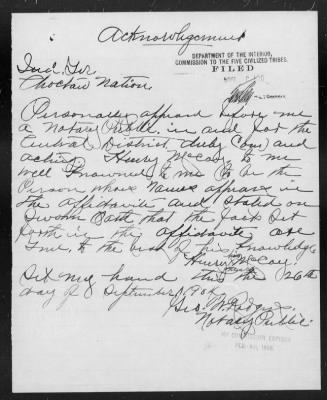 Acknowledgement
DEPARTMENT OF THE INTERIOR,
COMMISSION TO THE FIVE CIVILIZED TRIBES.
FILED
Ind. Ter.
Choctaw Nation
Personally appeard before me
a Notary Public in and for the
Central District duly Com and
acting Henry McCoy to me
well Knowned to me to be the
Person whose Names appears in
the Affidavits and stated on
Sworn Oath that the facts Set
forth in the Affidavits are
True, to the best of his Knowledge
Henry McCoy
Set my hand this the 26th
day of September 190
Geo. W. Rodgers
Notary Public
MY COMMISSION EXPIRES
FEB